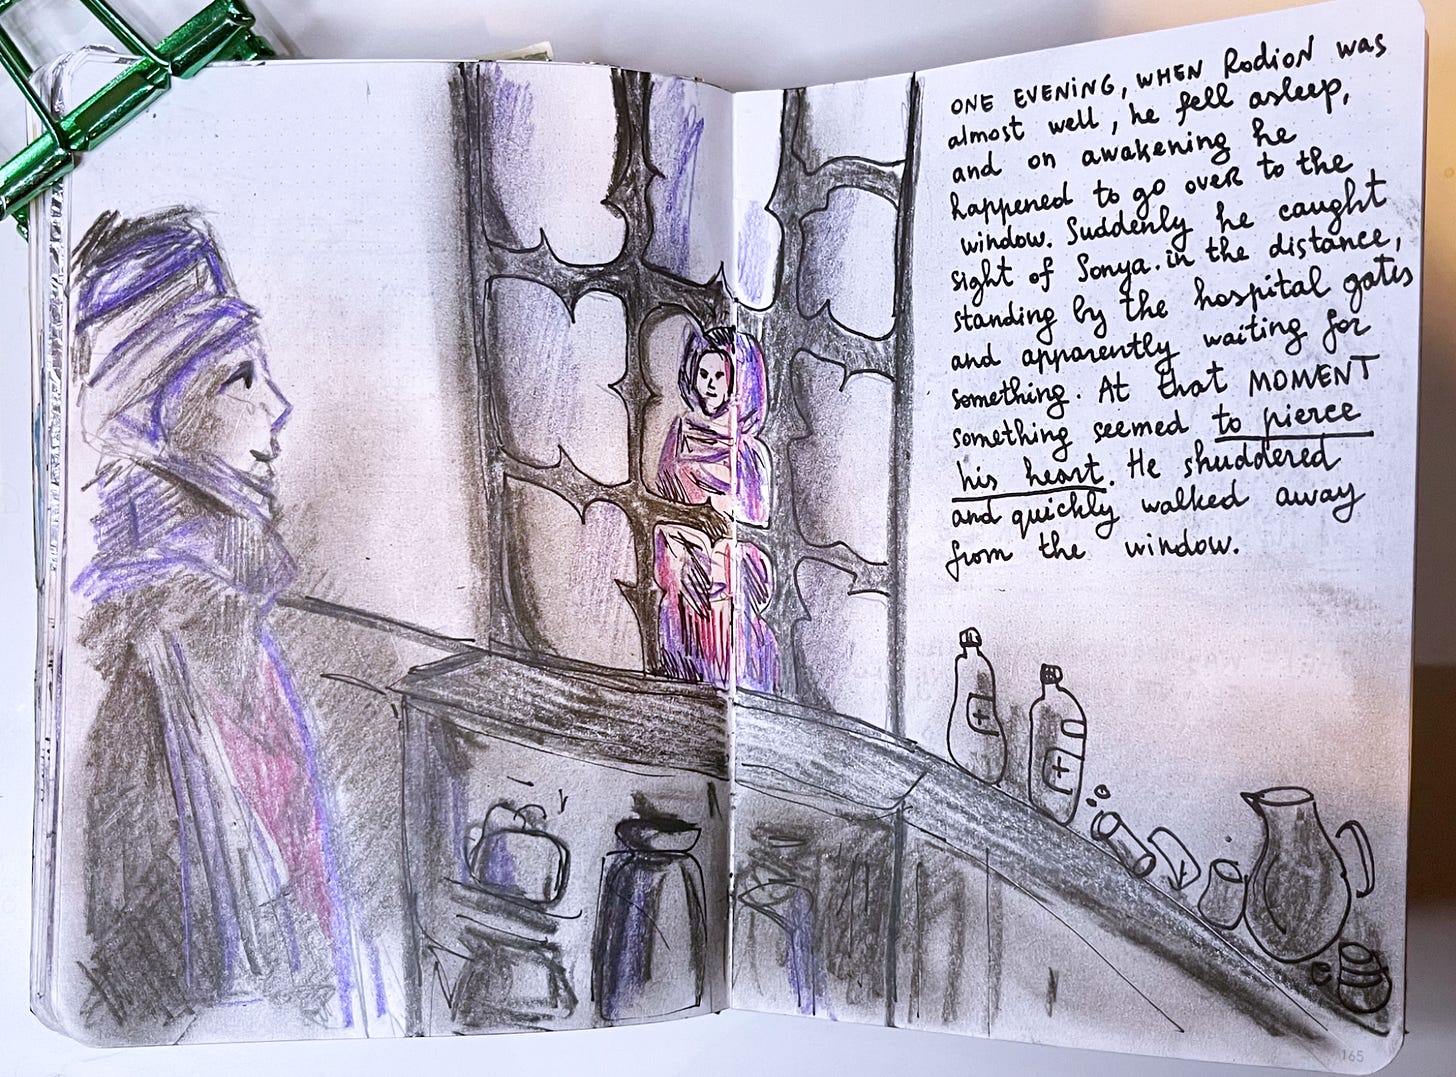 ONE EVENING, WHEN Rodion was
almost well, he fell asleep,
and on awakening he
happened to go over to the
window. Suddenly he caught
sight of Sonya. in the distance,
standing by the hospital gates
and apparently waiting for
something. At that MOMENT
something seemed to pierce
his heart. He shuddered
and quickly walked away
from the window.
165